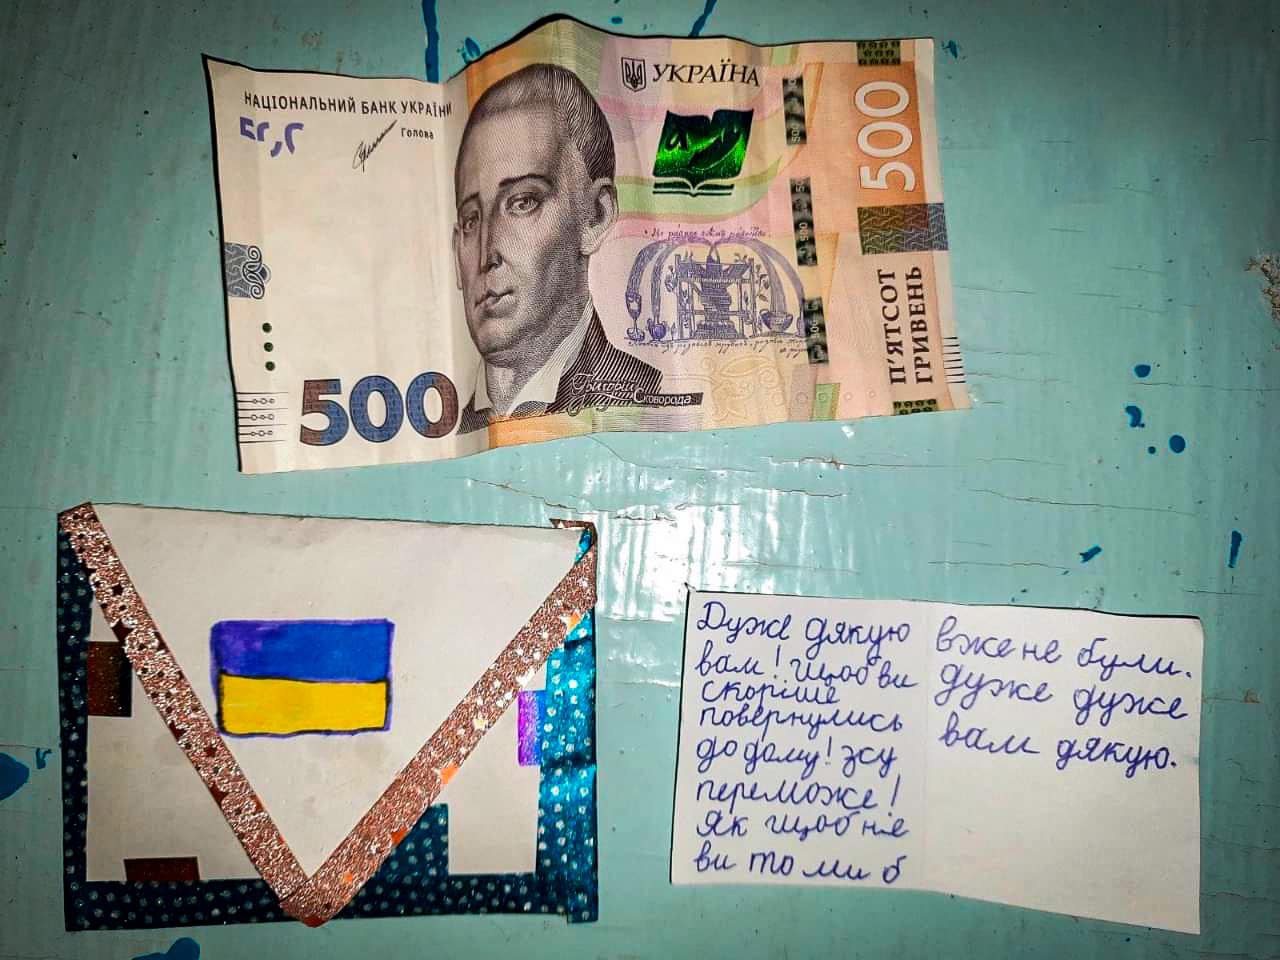 НАЦІОНАЛЬНИЙ БАНК УКРАЇНИ
Голова
УКРАЇНА
500
500
П'ЯТСОТ
ГРИВЕНЬ
Григорій
Сковорода
Дуже дякую
вам! Щоб ви
скоріше
повернулись
до дому! зсу
переможе!
Як щоб не
ви то ми б
вже не були.
дуже дуже
вам дякую.